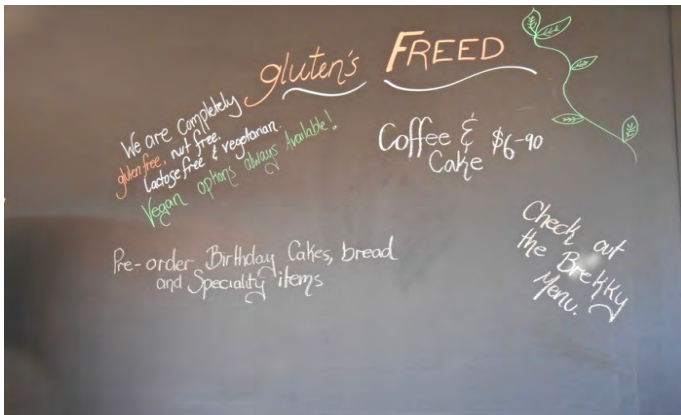 gluten's FREED
We are completely
gluten free, nut free,
lactose free & vegetarian.
Vegan options always Available!
Coffee & $6-90
Cake
Pre-order Birthday Cakes, bread
and Speciality items
Check out
the Brekky
Menu.